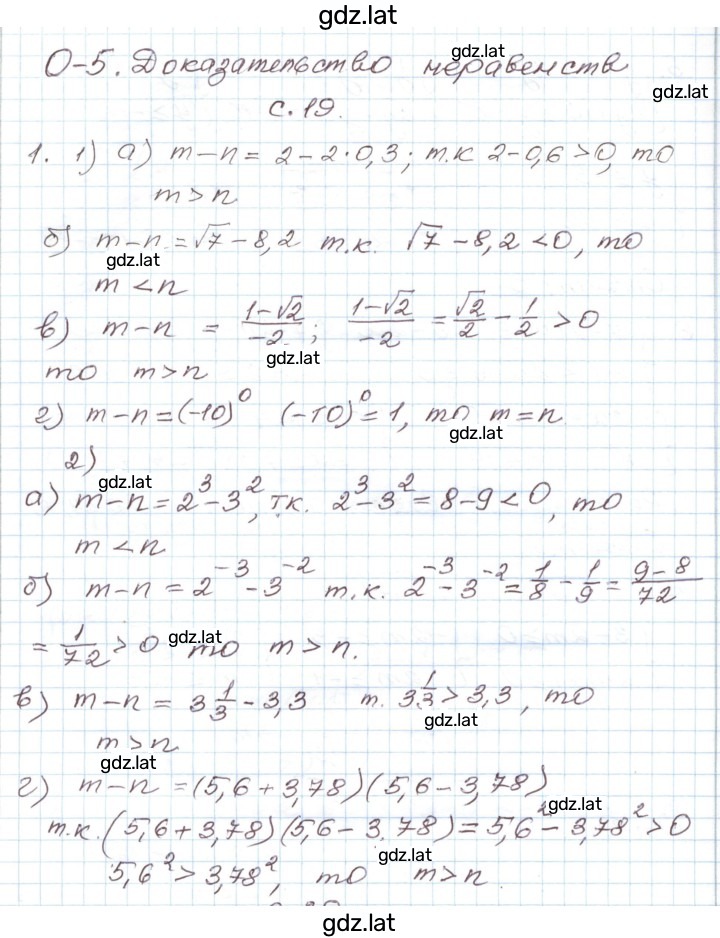 gdz.lat
О-5. Доказательство неравенств
gdz.lat
gdz.lat
с. 19.
1. 1) а) m-n = 2-2·0,3; т.к 2-0,6>0, то
m>n
б) m-n = √7-8,2 т.к. √7-8,2<0, то
gdz.lat
m<n
в) m-n = (1-√2)/(-2); (1-√2)/(-2) = √2/2 - 1/2 >0
gdz.lat
то m>n
г) m-n=(-10)⁰ (-10)⁰=1, то m=n
gdz.lat
2)
gdz.lat
а) m-n=2³-3², т.к. 2³-3²=8-9<0, то
m<n
б) m-n = 2⁻³-3⁻² т.к. 2⁻³-3⁻² = 1/8 - 1/9 = (9-8)/72
= 1/72 >0 gdz.lat то m>n.
в) m-n = 3 1/3 - 3,3 т. 3 1/3 > 3,3, то
gdz.lat
m>n
gdz.lat
г) m-n = (5,6+3,78)(5,6-3,78)
gdz.lat
т.к. (5,6+3,78)(5,6-3,78)=5,6²-3,78²>0
gdz.lat
5,6²>3,78², то m>n
gdz.lat